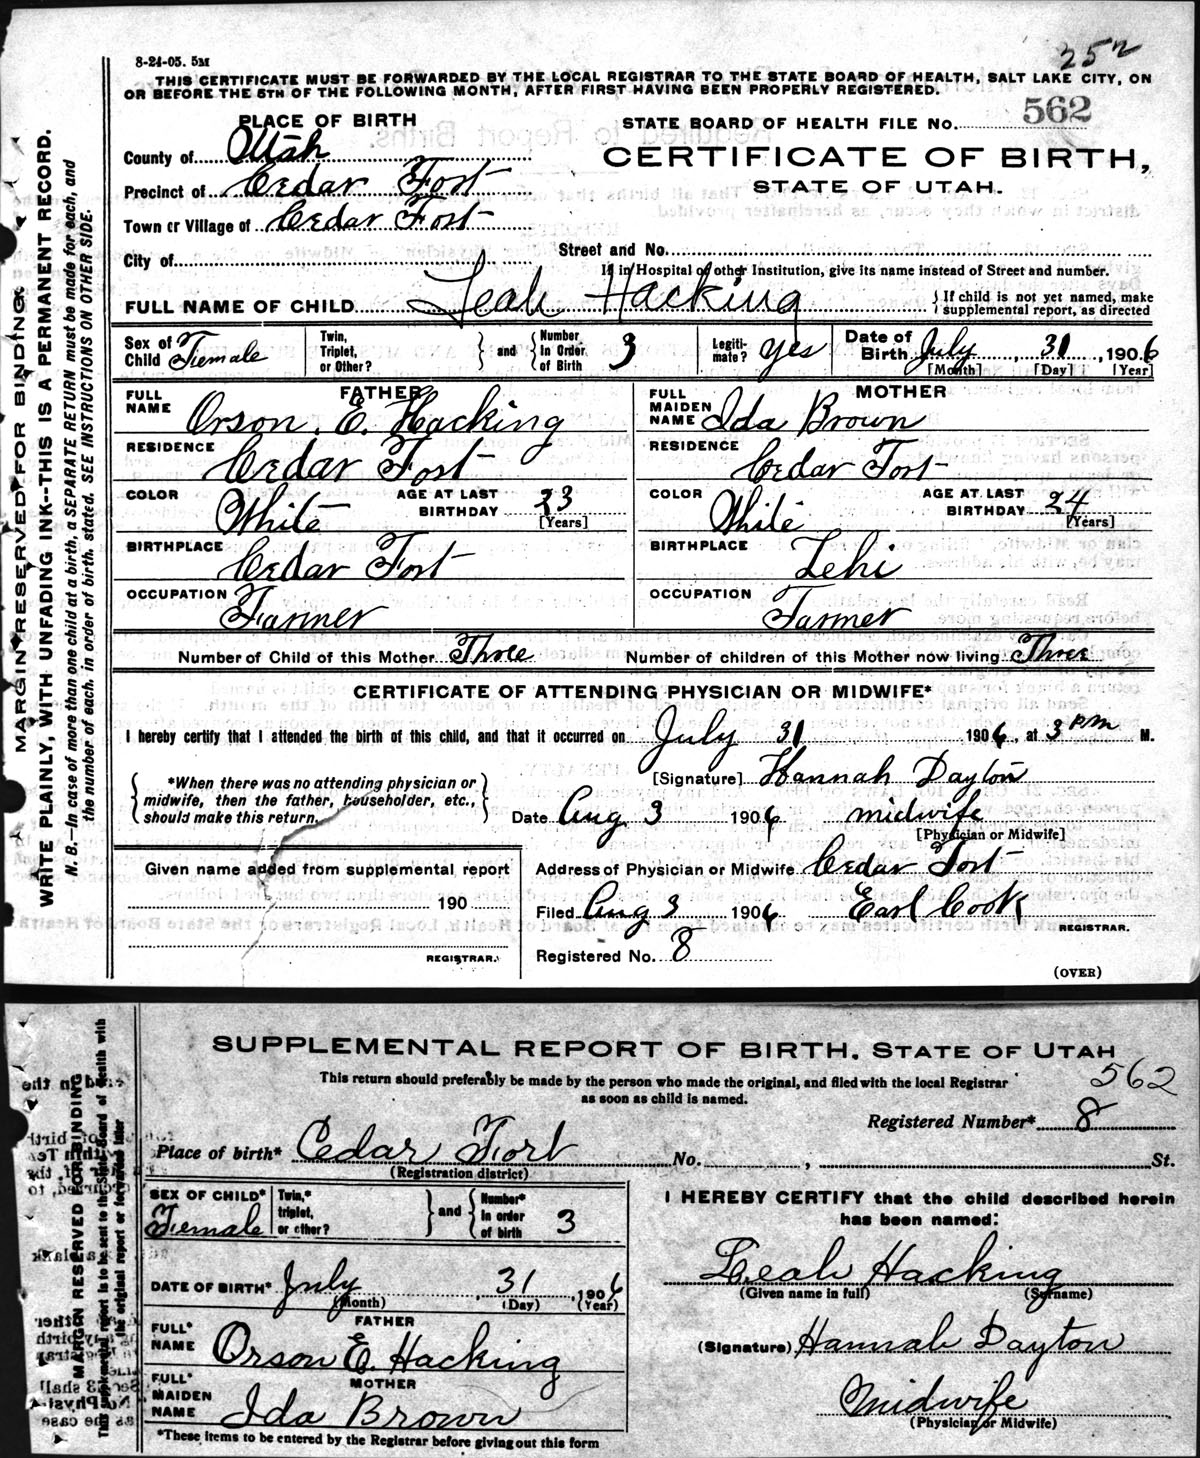 252
8-24-05. 5M
THIS CERTIFICATE MUST BE FORWARDED BY THE LOCAL REGISTRAR TO THE STATE BOARD OF HEALTH, SALT LAKE CITY, ON
OR BEFORE THE 5TH OF THE FOLLOWING MONTH, AFTER FIRST HAVING BEEN PROPERLY REGISTERED.
PLACE OF BIRTH
STATE BOARD OF HEALTH FILE No. 562
County of Utah
CERTIFICATE OF BIRTH,
Precinct of Cedar Fort
STATE OF UTAH.
Town or Village of Cedar Fort
City of
Street and No.
If in Hospital of other Institution, give its name instead of Street and number.
FULL NAME OF CHILD Leah Hacking
If child is not yet named, make supplemental report, as directed
Sex of Child Female
Twin, Triplet, or Other? and Number in Order of Birth 3
Legitimate? yes
Date of Birth July 31, 1906
[Month] [Day] [Year]
FATHER
FULL NAME Orson. E. Hacking
RESIDENCE Cedar Fort
COLOR White AGE AT LAST BIRTHDAY 23 [Years]
BIRTHPLACE Cedar Fort
OCCUPATION Farmer
MOTHER
FULL MAIDEN NAME Ida Brown
RESIDENCE Cedar Fort
COLOR White AGE AT LAST BIRTHDAY 24 [Years]
BIRTHPLACE Lehi
OCCUPATION Farmer
Number of Child of this Mother Three Number of children of this Mother now living Three
CERTIFICATE OF ATTENDING PHYSICIAN OR MIDWIFE*
I hereby certify that I attended the birth of this child, and that it occurred on July 31 1906, at 3 PM M.
*When there was no attending physician or
midwife, then the father, householder, etc.,
should make this return.
[Signature] Hannah Dayton
Date Aug 3 1906 midwife
[Physician or Midwife]
Given name added from supplemental report
190
REGISTRAR.
Address of Physician or Midwife Cedar Fort
Filed Aug 3 1906 Earl Cook
REGISTRAR.
Registered No. 8
(OVER)
MARGIN RESERVED FOR BINDING.
WRITE PLAINLY, WITH UNFADING INK--THIS IS A PERMANENT RECORD.
N. B.—In case of more than one child at a birth, a SEPARATE RETURN must be made for each, and
the number of each, in order of birth, stated. SEE INSTRUCTIONS ON OTHER SIDE.
SUPPLEMENTAL REPORT OF BIRTH. STATE OF UTAH
This return should preferably be made by the person who made the original, and filed with the local Registrar
as soon as child is named.
562
Registered Number* 8
Place of birth* Cedar Fort No. , St.
(Registration district)
SEX OF CHILD* Female
Twin,* triplet, or other? and Number* in order of birth 3
DATE OF BIRTH* July 31, 1906
(Month) (Day) (Year)
FATHER
FULL* NAME Orson E. Hacking
MOTHER
FULL* MAIDEN NAME Ida Brown
*These items to be entered by the Registrar before giving out this form
I HEREBY CERTIFY that the child described herein
has been named:
Leah Hacking
(Given name in full) (Surname)
(Signature) Hannah Dayton
Midwife
(Physician or Midwife)
MARGIN RESERVED FOR BINDING
This supplemental report is to be sent to the State Board of Health with
the original report or forwarded later